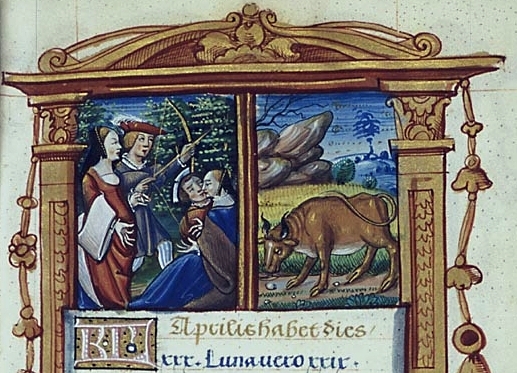 KL Aprilis habet dies
xxx. Luna vero xxix.